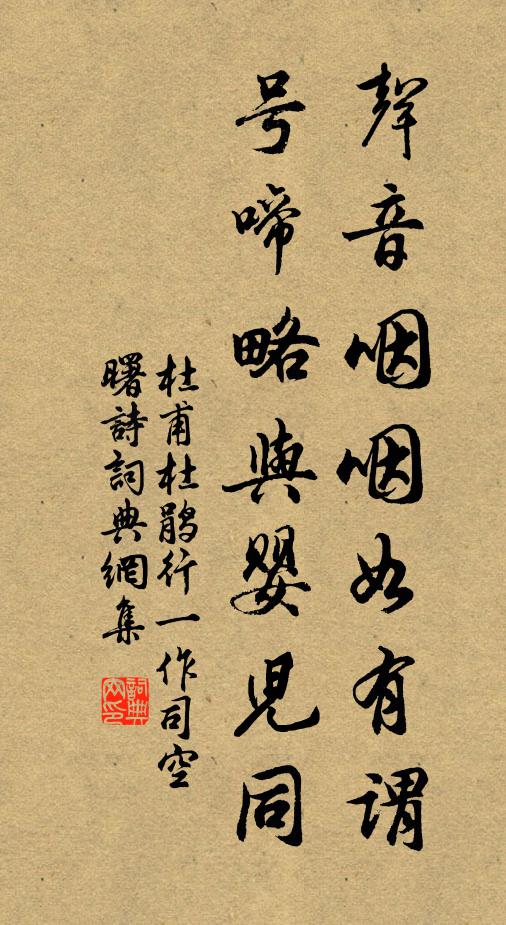 聲音咽咽如有謂
号啼略與嬰兒同
杜甫杜鵑行一作司空
曙詩詞典網集
詞典網印